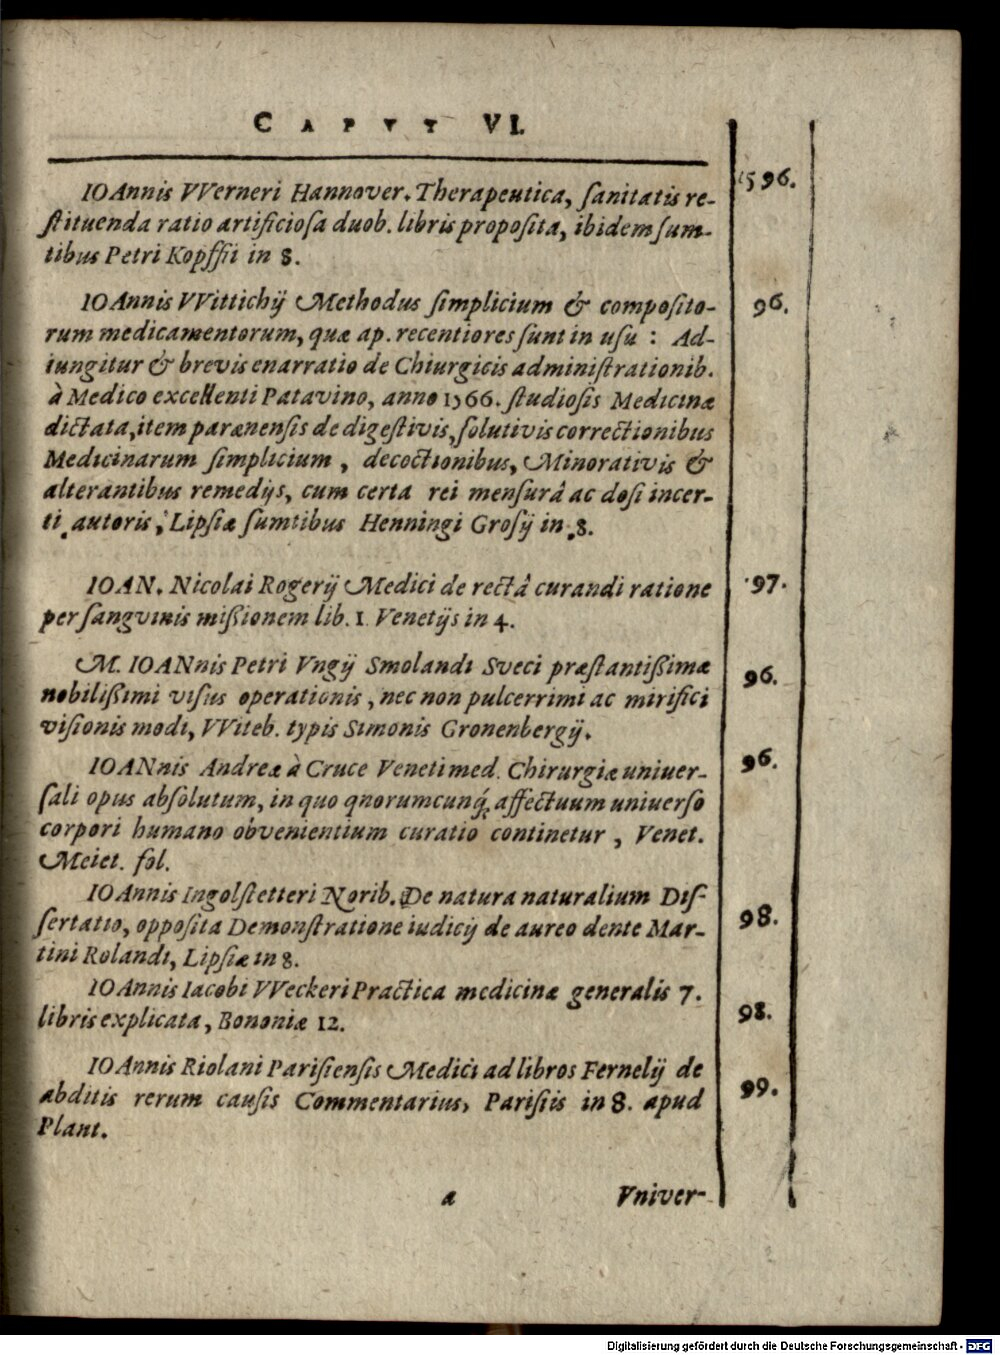 CAPVT VI.
IOAnnis VVerneri Hannover. Therapeutica, sanitatis re- 1596.
stituenda ratio artificiosa duob. libris proposita, ibidem sum-
tibus Petri Kopffii in 8.
IOAnnis VVittichij Methodus simplicium & composito- 96.
rum medicamentorum, quæ ap. recentiores sunt in usu : Ad-
iungitur & brevis enarratio de Chiurgicis administrationib.
à Medico excellenti Patavino, anno 1566. studiosis Medicinæ
dictata, item parænensis de digestivis, solutivis correctionibus
Medicinarum simplicium, decoctionibus, Minorativis &
alterantibus remedijs, cum certa rei mensurâ ac dosi incer-
ti autoris, Lipsiæ sumtibus Henningi Grosij in 8.
IOAN. Nicolai Rogerij Medici de rectâ curandi ratione 97.
per sangvinis missionem lib. 1. Venetijs in 4.
M. IOANnis Petri Vngij Smolandi Sveci præstantissimæ 96.
nobilissimi visus operationis, nec non pulcerrimi ac mirifici
visionis modi, VViteb. typis Simonis Gronenbergij.
IOANnis Andreæ à Cruce Veneti med. Chirurgiæ uniuer- 96.
sali opus absolutum, in quo qnorumcunq́; affectuum uniuerso
corpori humano obvenientium curatio continetur, Venet.
Meiet. fol.
IOAnnis Ingolstetteri Norib. De natura naturalium Dis-
sertatio, opposita Demonstratione iudicij de aureo dente Mar- 98.
tini Rolandi, Lipsiæ in 8.
IOAnnis Iacobi VVeckeri Practica medicinæ generalis 7.
libris explicata, Bononiæ 12. 98.
IOAnnis Riolani Parisiensis Medici ad libros Fernelij de
abditis rerum causis Commentarius, Parisiis in 8. apud 99.
Plant.
a Vniver-
Digitalisierung gefördert durch die Deutsche Forschungsgemeinschaft - DFG